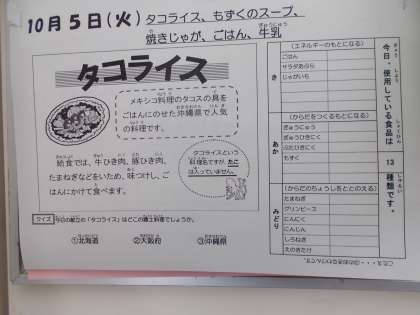 10月5日(火) タコライス、もずくのスープ、
焼きじゃが、ごはん、牛乳
タコライス
メキシコ料理のタコスの具を
ごはんにのせた沖縄県で人気
の料理です。
給食では、牛ひき肉、豚ひき肉、
たまねぎなどをいため、味つけし、ご
はんにかけて食べます。
タコライスという
料理名ですが、たこ
は入っていません。
クイズ 今日の献立の「タコライス」はどこの郷土料理でしょうか。
①北海道 ②大阪府 ③沖縄県
今日、使用している食品は 13 種類です。
き
(エネルギーのもとになる)
ごはん
サラダあぶら
じゃがいも
あか
(からだをつくるもとになる)
ぎゅうにゅう
ぎゅうひきにく
ぶたひきにく
もずく
みどり
(からだのちょうしをととのえる)
たまねぎ
グリンピース
にんにく
にんじん
しろねぎ
えのきたけ